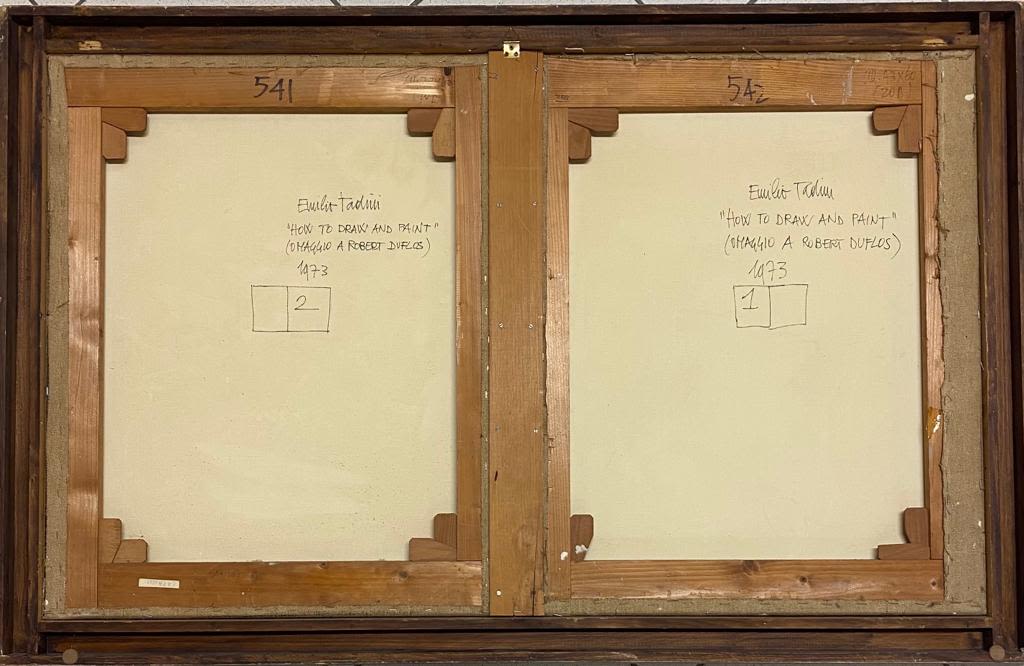 541
Emilio Tadini
"HOW TO DRAW AND PAINT"
(OMAGGIO A ROBERT DUFLOS)
1973
2
542
Emilio Tadini
"HOW TO DRAW AND PAINT"
(OMAGGIO A ROBERT DUFLOS)
1973
1